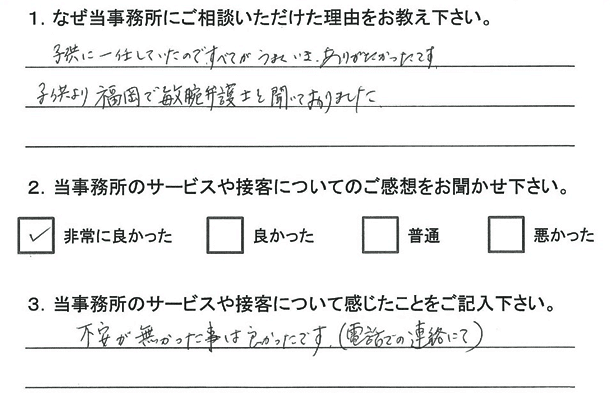 1. なぜ当事務所にご相談いただけた理由をお教え下さい。
子供に一任していたのですべてがうまくいき、ありがたかったです
子供より福岡で敏腕弁護士と聞いておりました
2. 当事務所のサービスや接客についてのご感想をお聞かせ下さい。
非常に良かった 良かった 普通 悪かった
3. 当事務所のサービスや接客について感じたことをご記入下さい。
不安が無かった事は良かったです。(電話での連絡にて)